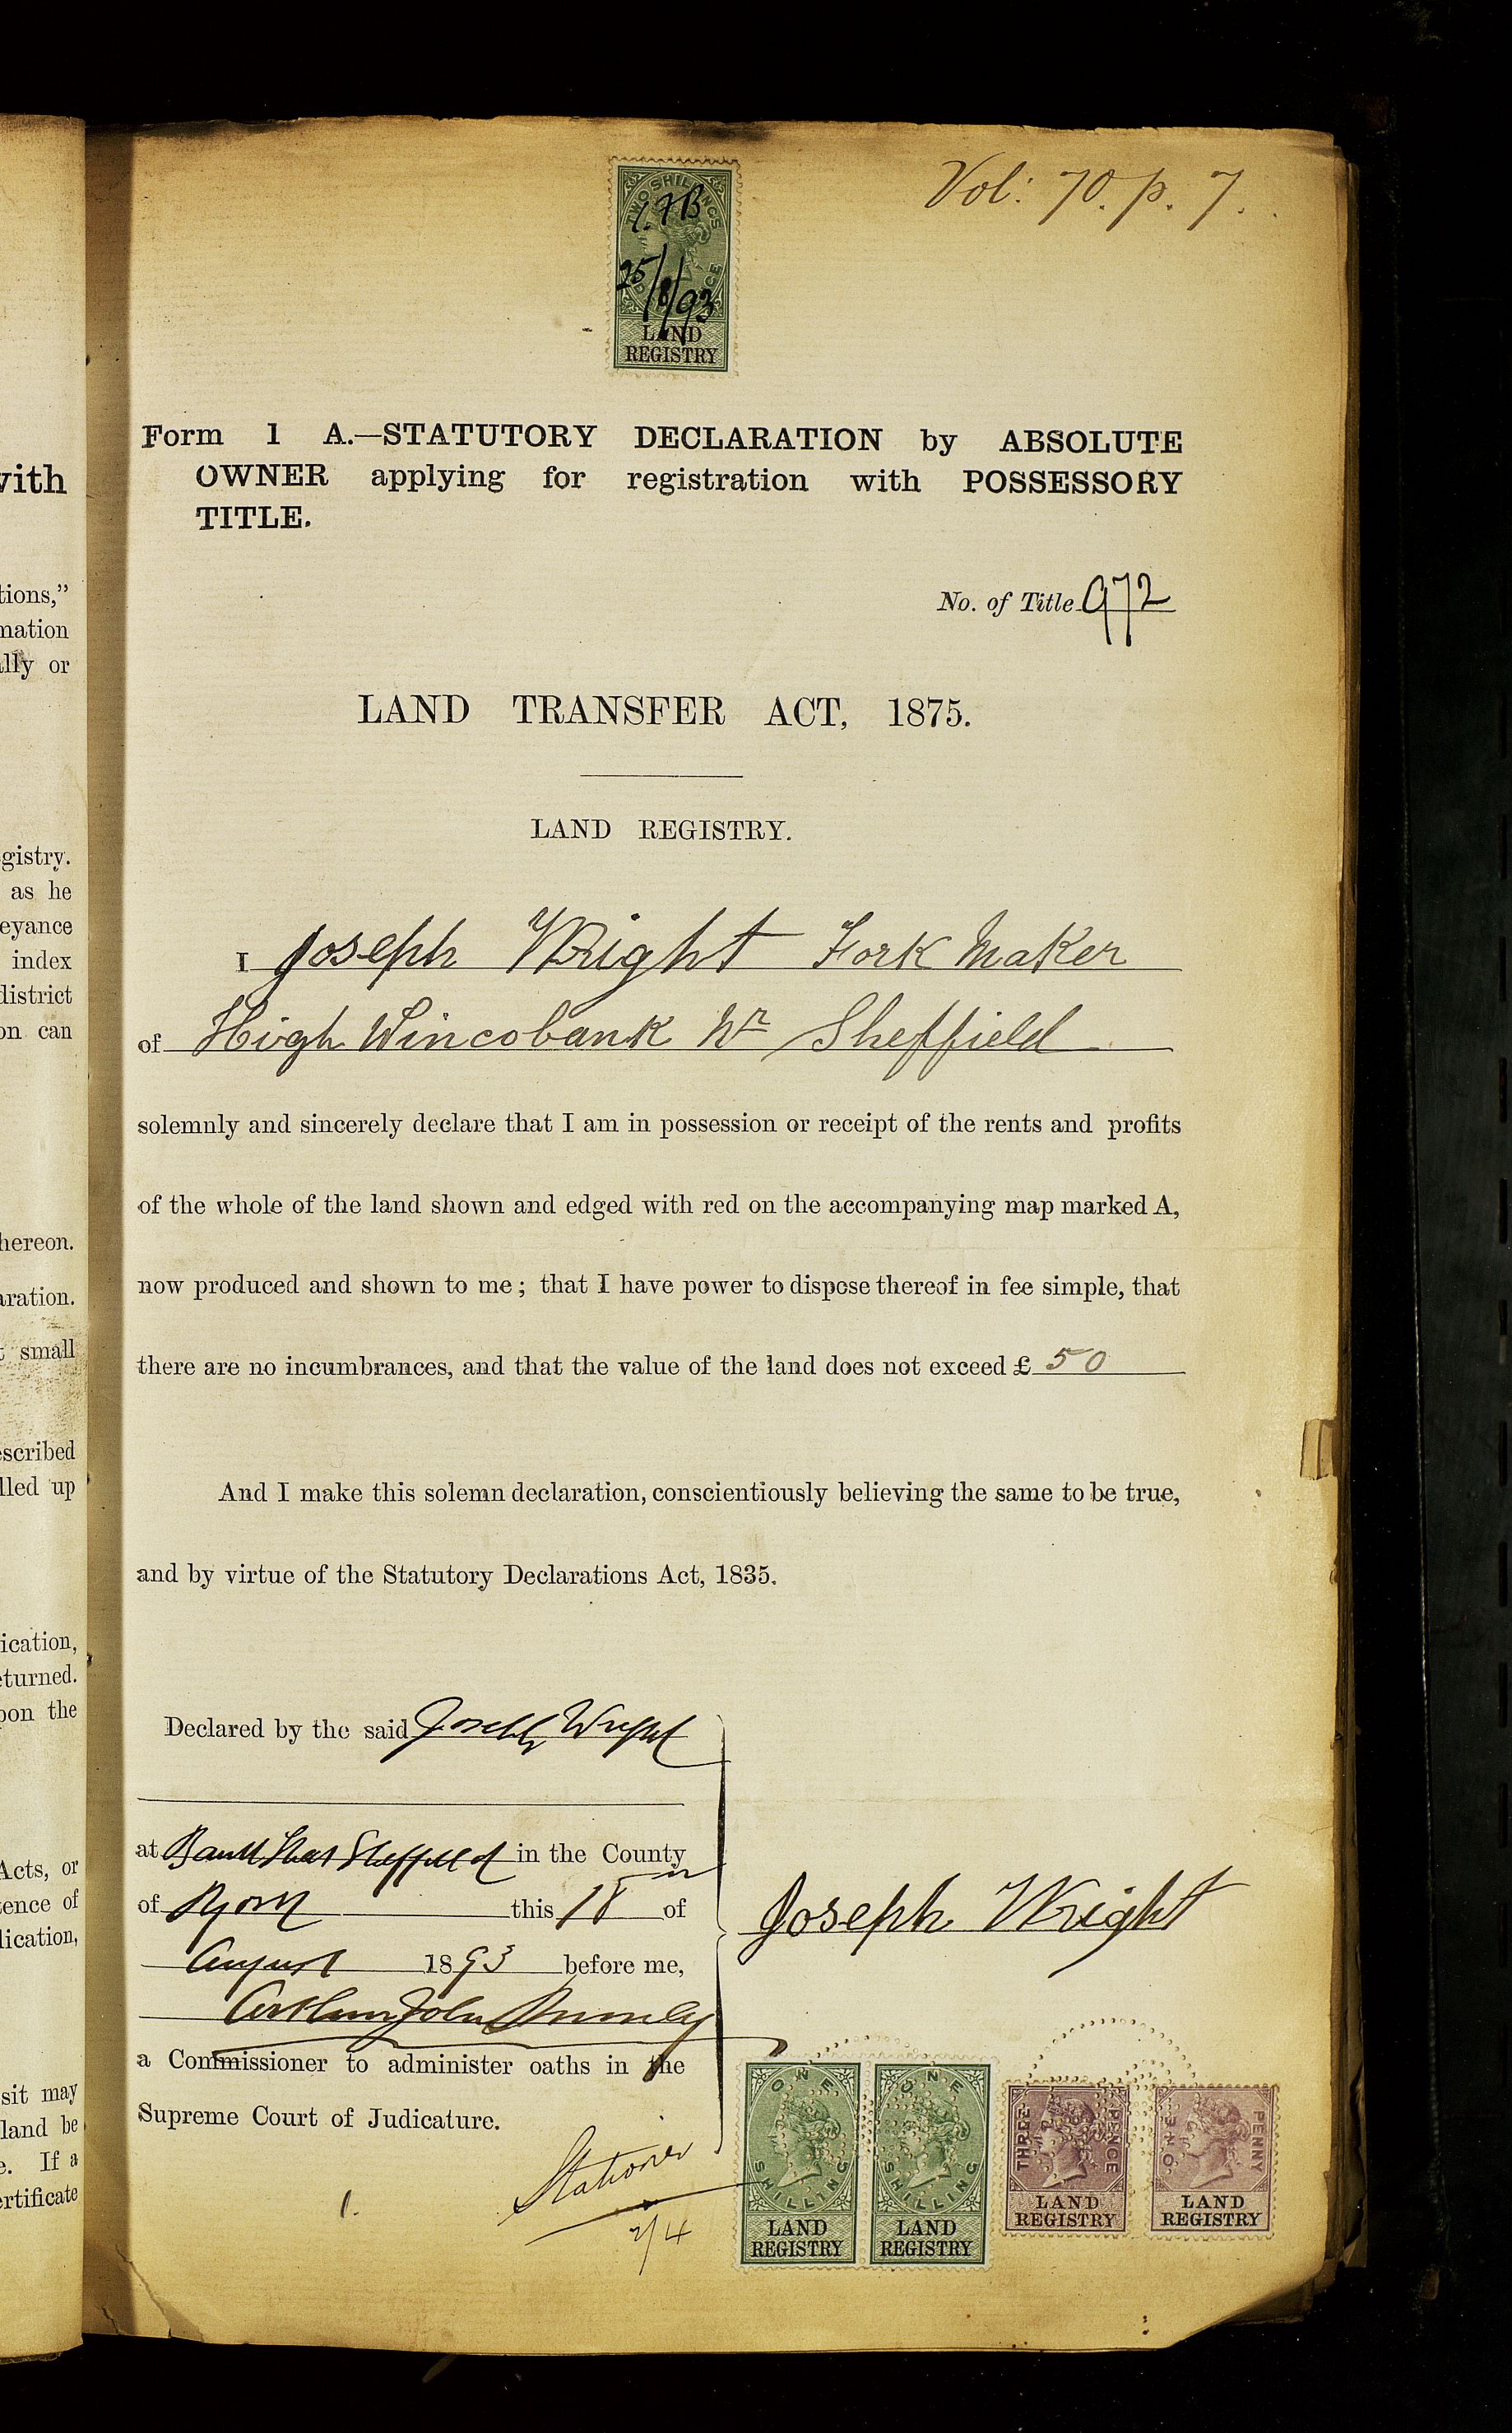 Vol: 70. p. 7.
TWO SHILLINGS
25/8/93
LAND
REGISTRY
Form 1 A.—STATUTORY DECLARATION by ABSOLUTE
OWNER applying for registration with POSSESSORY
TITLE.
No. of Title 972
LAND TRANSFER ACT, 1875.
LAND REGISTRY.
I Joseph Wright Fork Maker
of High Wincobank Nr Sheffield
solemnly and sincerely declare that I am in possession or receipt of the rents and profits
of the whole of the land shown and edged with red on the accompanying map marked A,
now produced and shown to me; that I have power to dispose thereof in fee simple, that
there are no incumbrances, and that the value of the land does not exceed £ 50
And I make this solemn declaration, conscientiously believing the same to be true,
and by virtue of the Statutory Declarations Act, 1835.
Declared by the said Joseph Wright
at Bank Street Sheffield in the County
of York this 18 of
August 1893 before me,
Joseph Wright
Arthur John
a Commissioner to administer oaths in the
Supreme Court of Judicature.
Stationer
2/4
1.
ONE SHILLING
LAND
REGISTRY
ONE SHILLING
LAND
REGISTRY
THREE PENCE
LAND
REGISTRY
ONE PENNY
LAND
REGISTRY
with
tions,"
mation
ally or
gistry.
as he
eyance
index
district
on can
hereon.
aration.
small
scribed
lled up
ication,
eturned.
pon the
Acts, or
tence of
lication,
sit may
land be
e. If a
ertificate